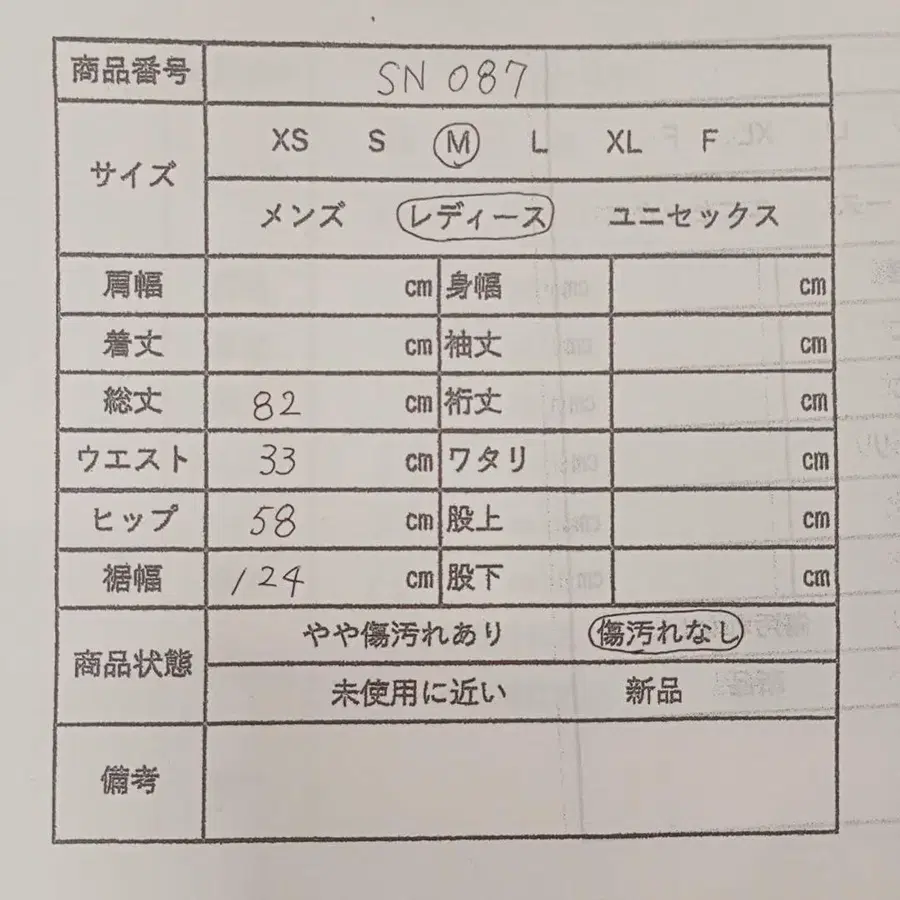 商品番号 SN 087
サイズ XS S M L XL F
メンズ レディース ユニセックス
肩幅 cm 身幅 cm
着丈 cm 袖丈 cm
総丈 82 cm 裄丈 cm
ウエスト 33 cm ワタリ cm
ヒップ 58 cm 股上 cm
裾幅 124 cm 股下 cm
商品状態 やや傷汚れあり 傷汚れなし
未使用に近い 新品
備考